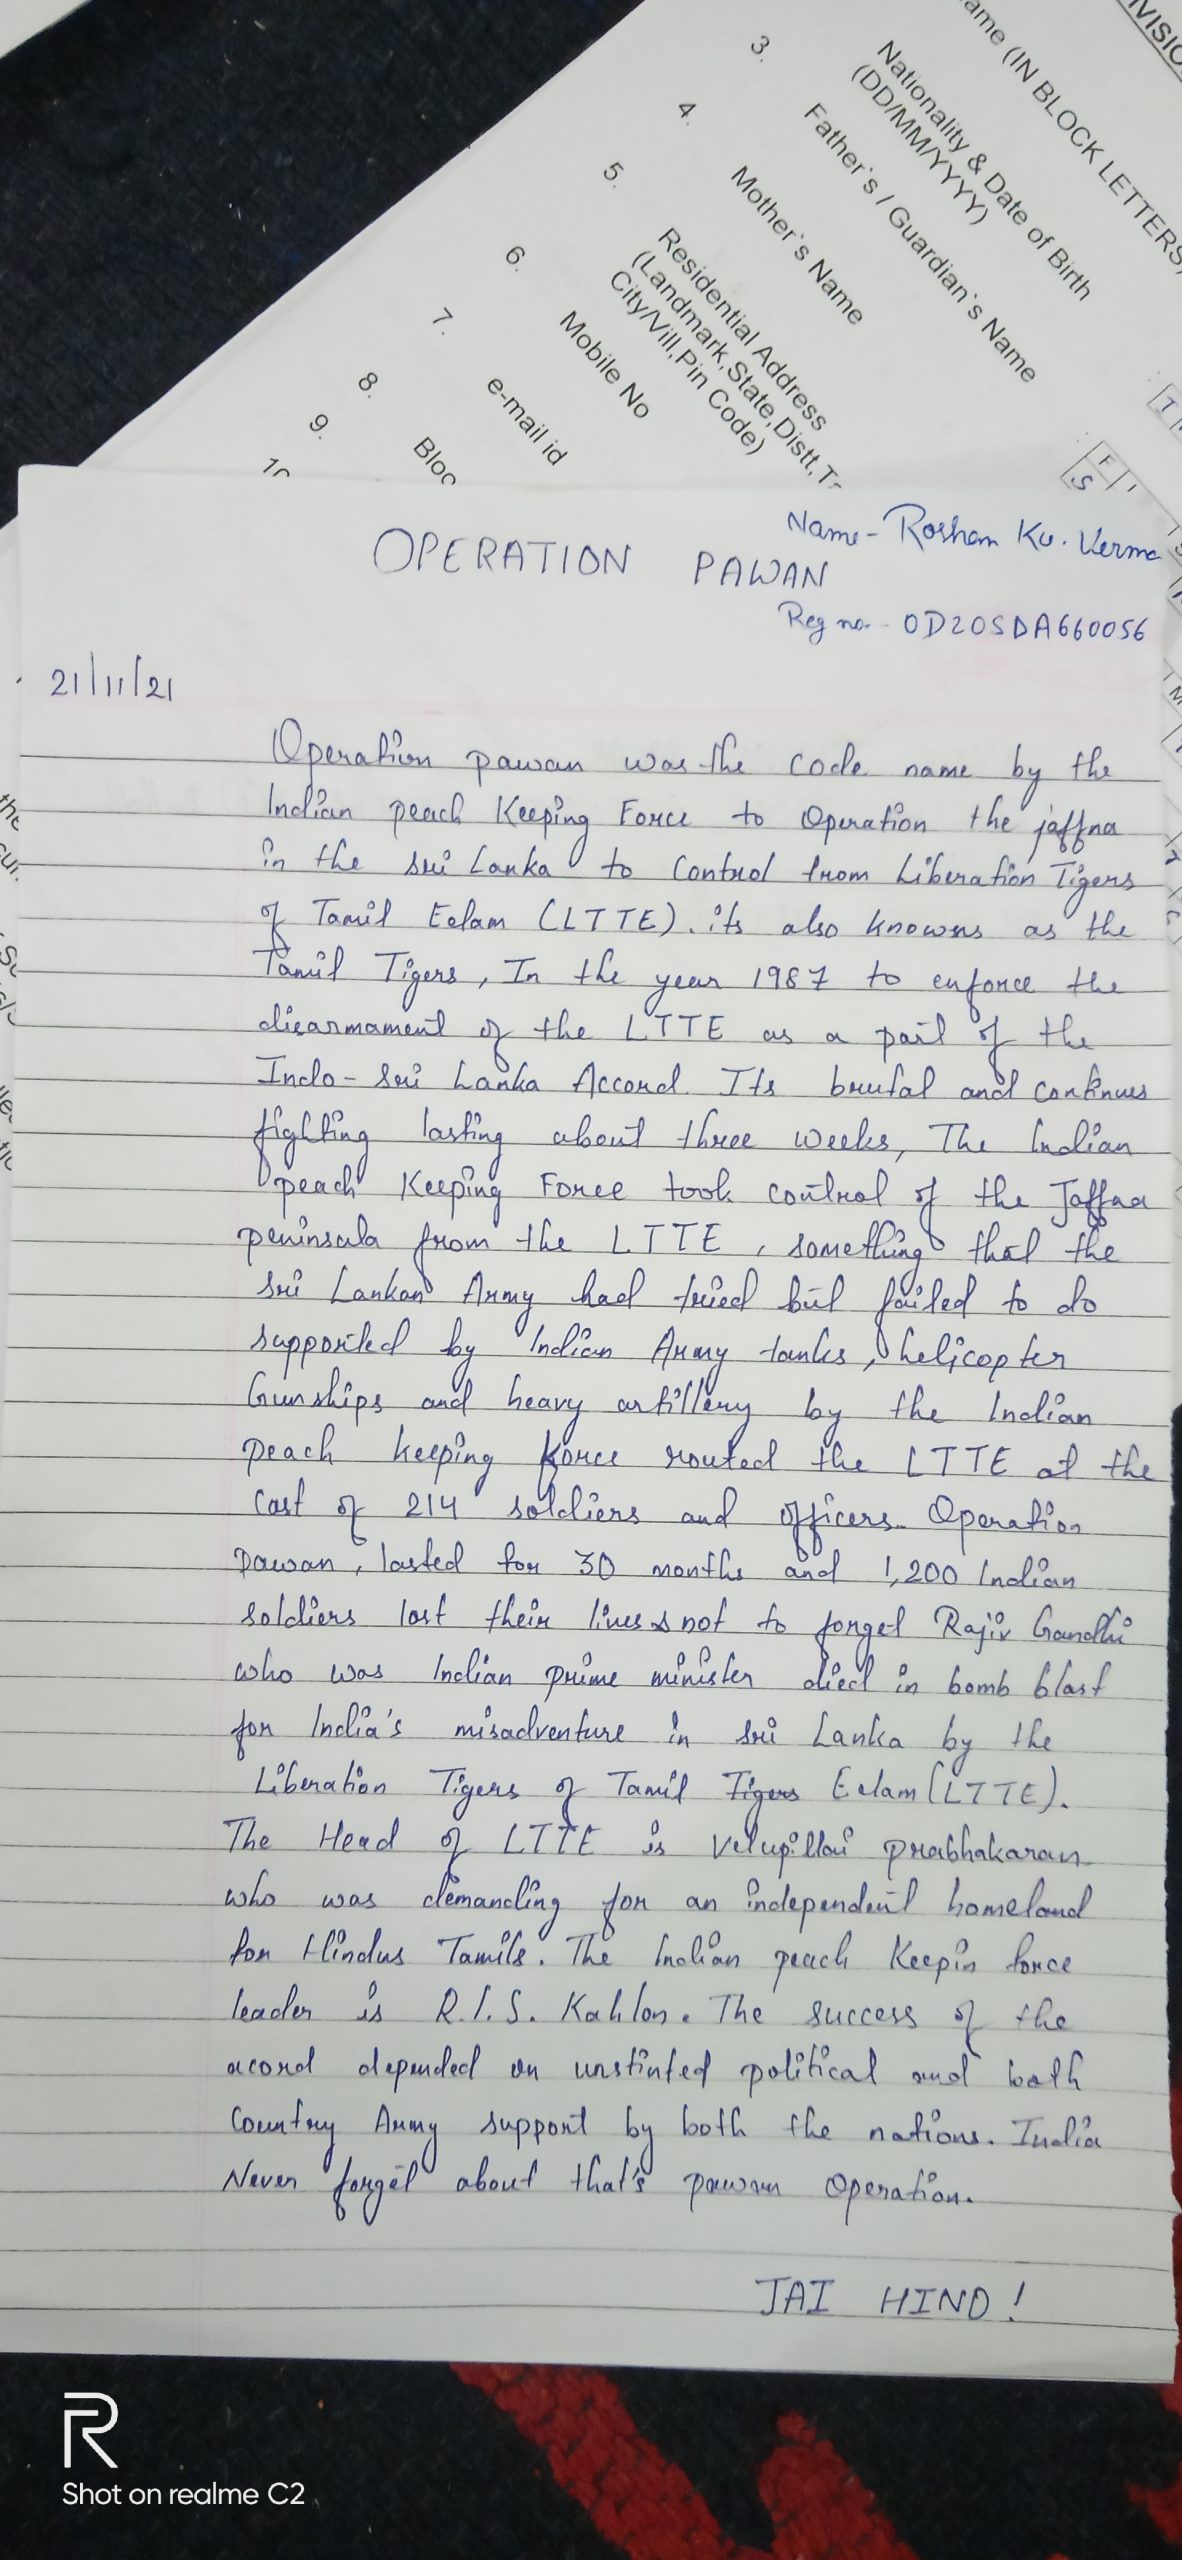 VISIO
ame (IN BLOCK LETTERS)
3. Nationality & Date of Birth
(DD/MM/YYYY)
4. Father`s / Guardian`s Name
5. Mother`s Name
6. Residential Address
(Landmark,State,Distt,T
City/Vill,Pin Code)
7. Mobile No
8. e-mail id
9. Bloo
10
Name- Roshan Ku. Verma
OPERATION PAWAN
Reg no.- OD20SDA660056
21/11/21
Operation pawan was the code name by the
Indian peach Keeping Force to Operation the jaffna
in the sri Lanka to Control from Liberation Tigers
of Tamil Eelam (LTTE). its also knowns as the
Tamil Tigers, In the year 1987 to enforce the
disarmament of the LTTE as a part of the
Indo- Sri Lanka Accord. Its brutal and continues
fighting lasting about three weeks, The Indian
peach Keeping Force took control of the Jaffna
peninsula from the LTTE, something that the
sri Lankan Army had tried but failed to do
supported by Indian Army tanks, helicopter
Gunships and heavy artillery by the Indian
peach keeping force routed the LTTE at the
Cost of 214 soldiers and officers. Operation
pawan, lasted for 30 months and 1,200 Indian
soldiers lost their lives & not to forget Rajiv Gandhi
who was Indian prime minister died in bomb blast
for India's misadventure in sri Lanka by the
Liberation Tigers of Tamil Tigers Eelam (LTTE).
The Head of LTTE is Velupillai prabhakaran
who was demanding for an independent homeland
for Hindus Tamils. The Indian peach Keepin force
leader is R.I.S. Kahlon. The success of the
acord depended on unstinted political and both
Country Army support by both the nations. India
Never forget about that's pawan Operation.
JAI HIND!
R
Shot on realme C2